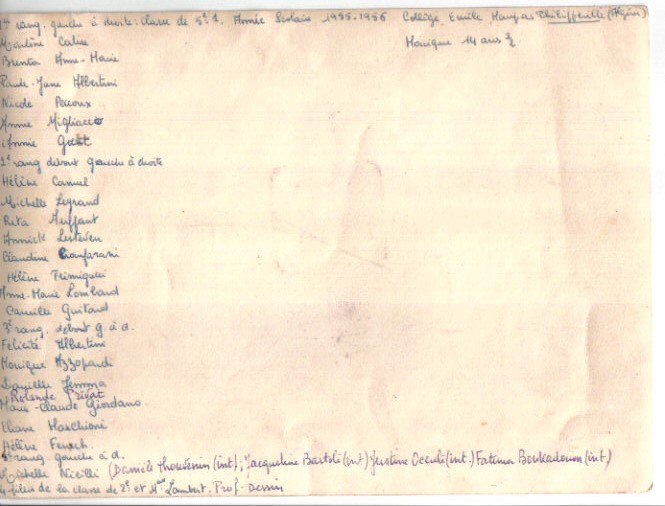 1er rang, gauche à droite: classe de 5e 1. Année Scolaire 1955.1956 Collège Emile Maupas Philippeville (Algérie)
Marlène Monique 14 ans ½
Brenta Anne-Marie
Paule-Jane Albertini
Nicole
Annie Migliaccio
Annie
2e rang debout gauche à droite
Hélène Canuel
Michelle Legrand
Rita
Annick Lesteven
Claudine Cianfarani
Hélène
Anne-Marie Lombard
Camille Guitard
3e rang, debout g. à d.
Félicité Albertini
Monique Azzopardi
Danielle Jemma
Rolande
Marie-Claude Giordano.
Eliane Marchioni
Hélène Fenech.
4e rang gauche à d.
Michelle (Danièle Thouvenin (int), Jacqueline Bartoli (int) Justine Occuli (int.) Fatima (int)
de la classe de et Lambert. Prof. Dessin